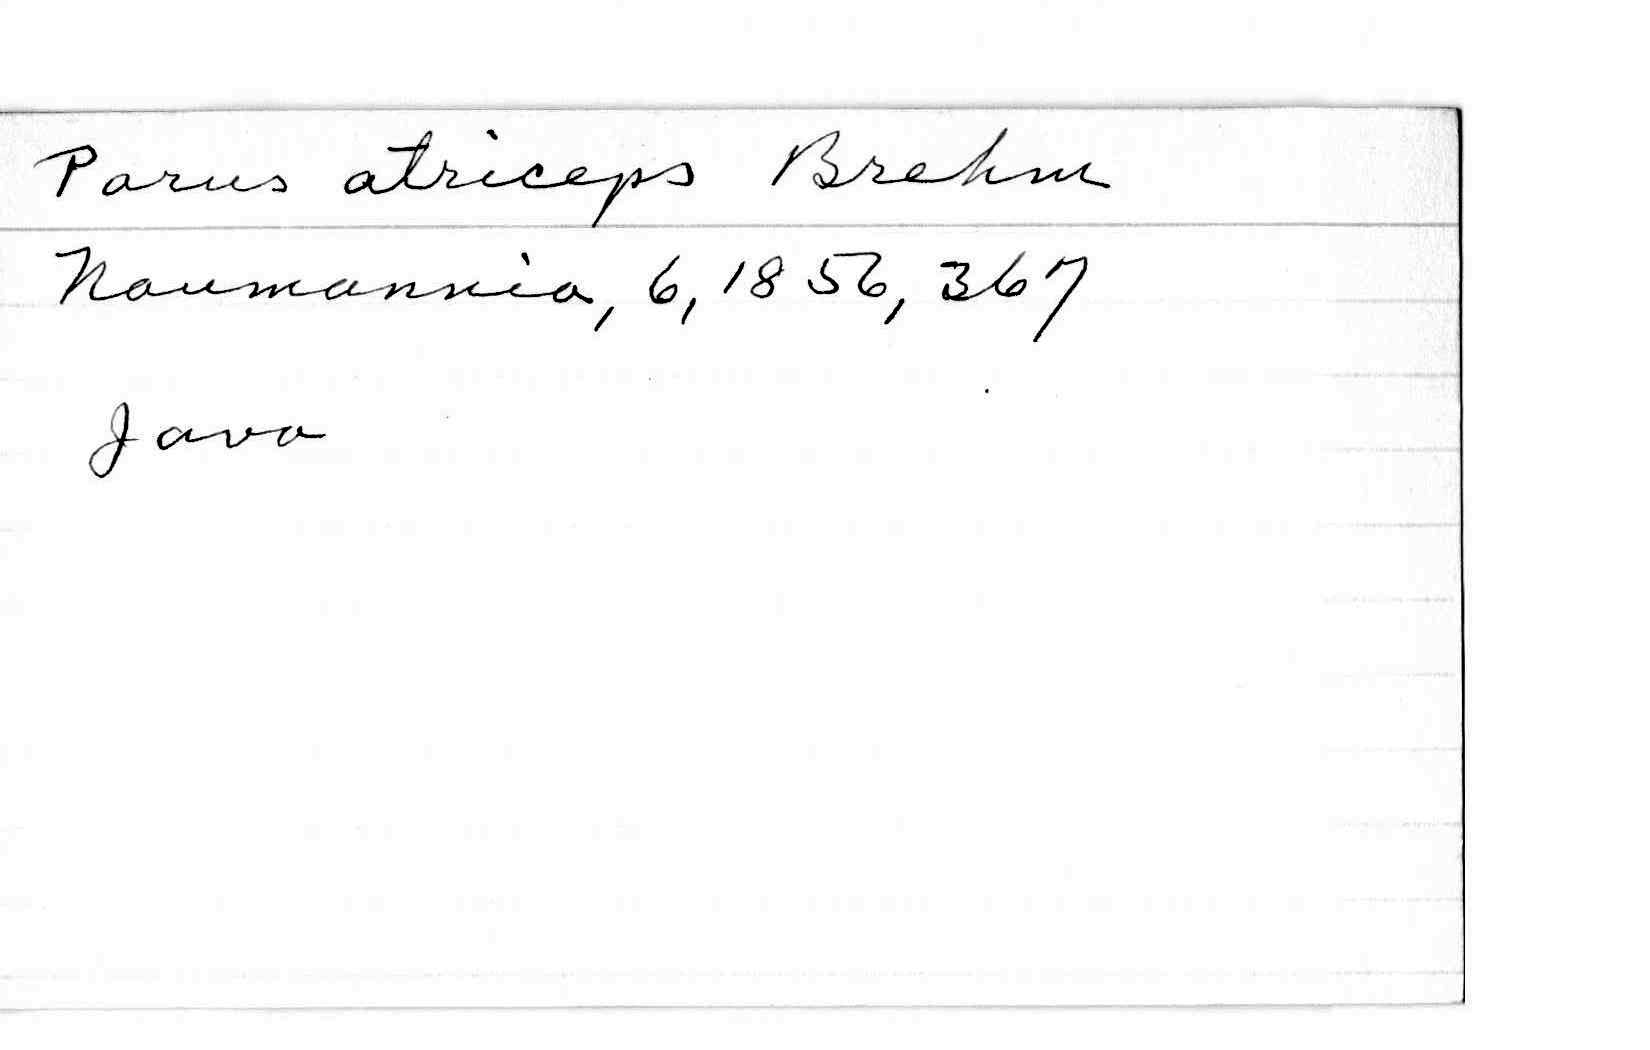 Parus atriceps Brehm
Naumannia, 6, 1856, 367
Java